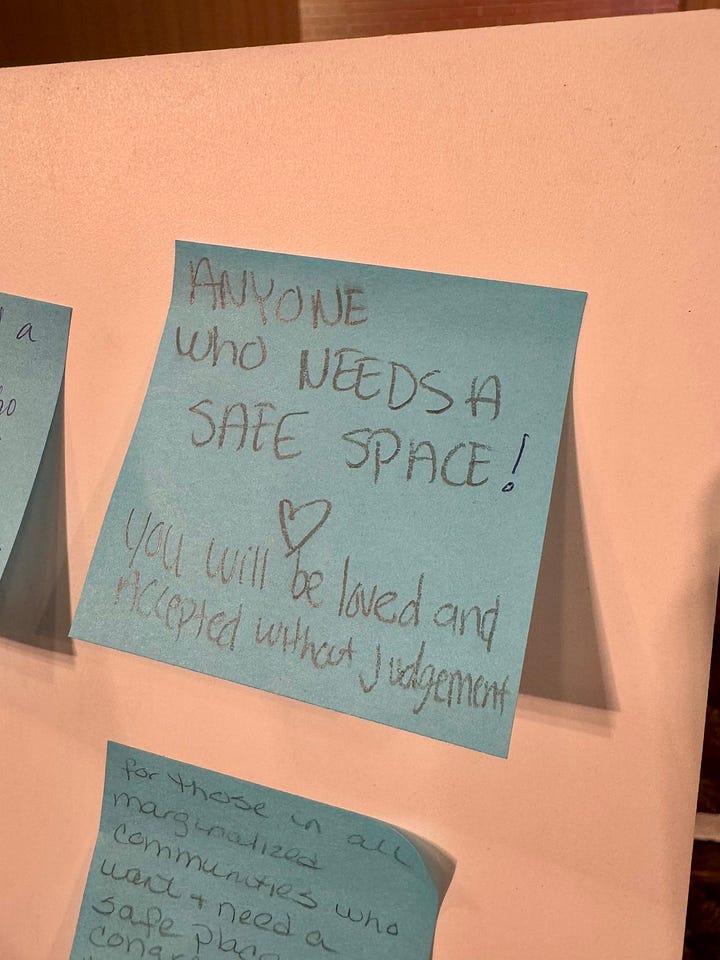 ANYONE
Who NEEDS A
SAFE SPACE!
You will be loved and
Accepted without judgement
for those in all
marginalized
communities who
want + need a
safe place
a